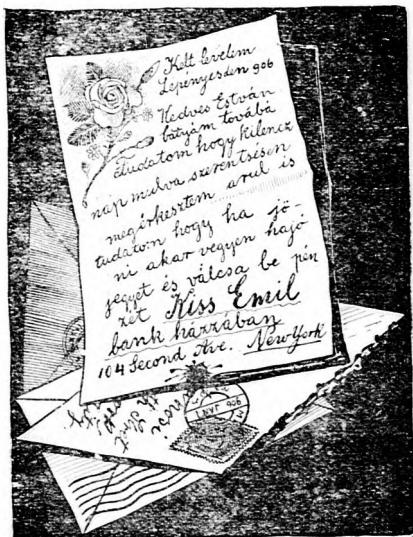 Kelt levelem
Lepényesden 906
Kedves Estván
bátyám továbá
tudatom hogy kilencz
náp mulva szerentsésen
megérkesztem arul is
tudatom hogy ha jö-
ni akar vegyen hajó
jegyet és válcsa be pén
zét Kiss Emil
bank házzában
104 Second Ave. NewYork
906